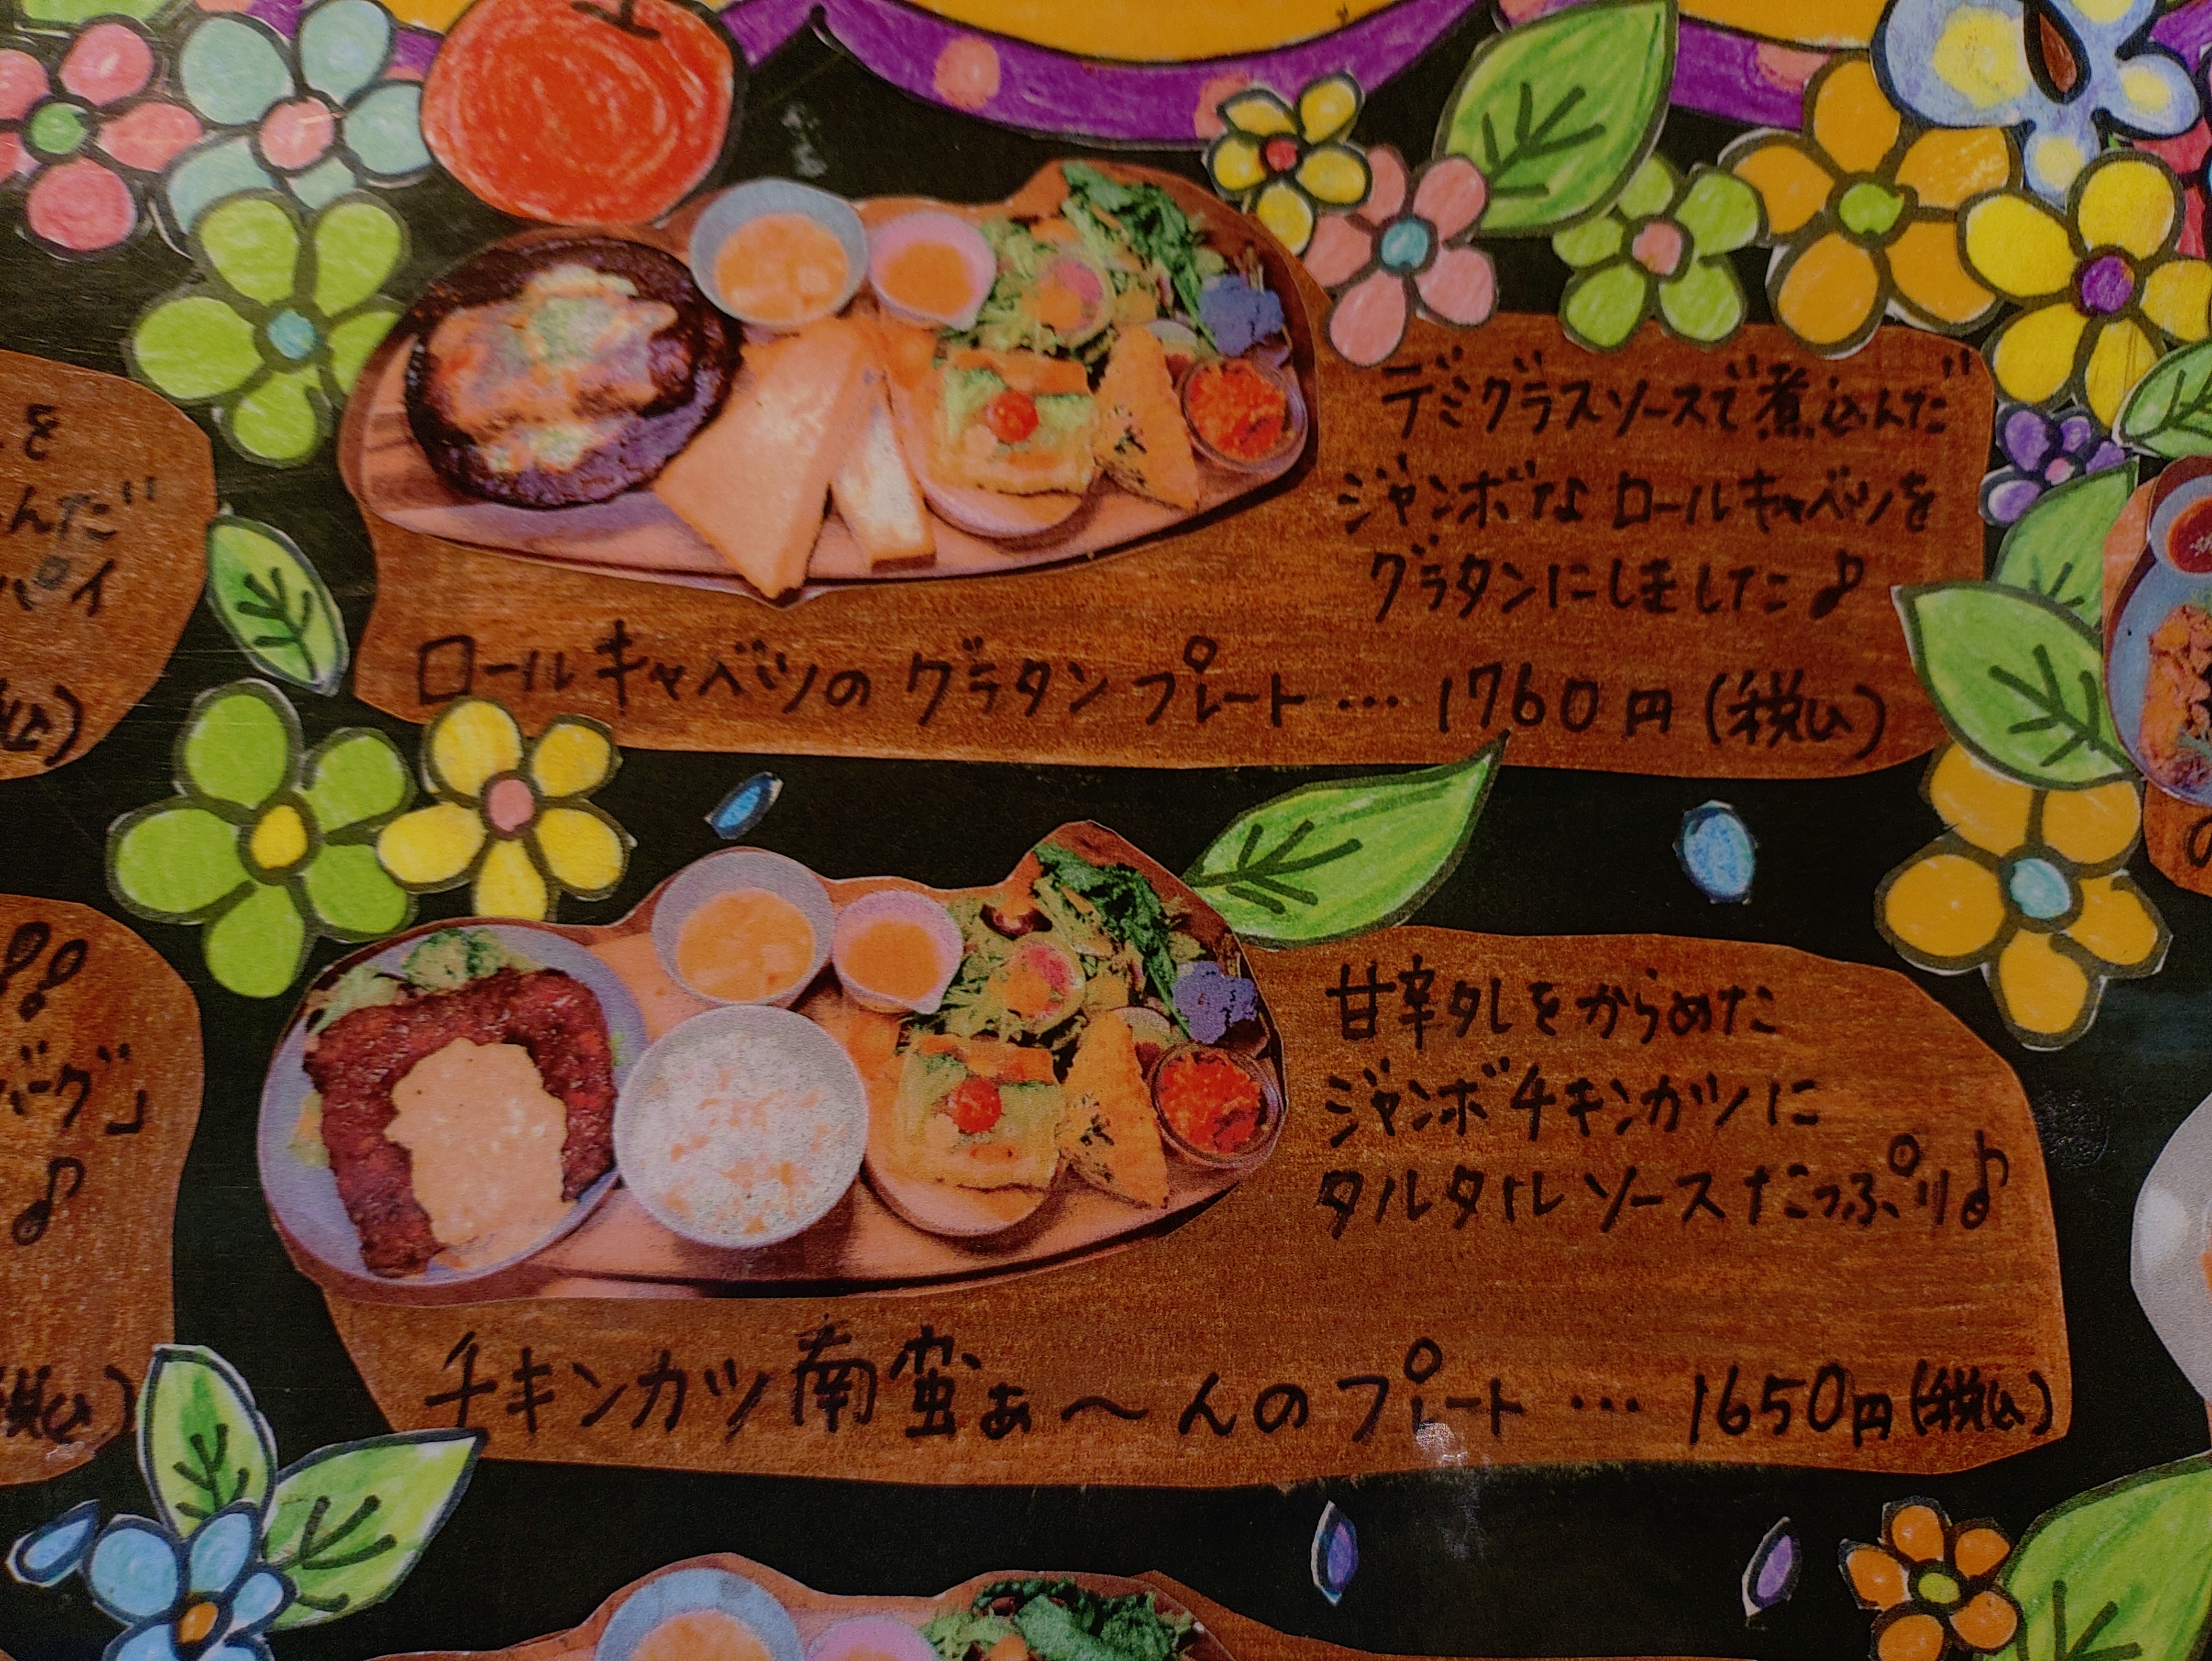 を
んだ
パイ
込)
デミグラスソースで煮込んだ
ジャンボなロールキャベツを
グラタンにしました♪
ロールキャベツのグラタンプレート…1760円(税込)
!!
バーグ」
♪
税込)
甘辛タレをからめた
ジャンボチキンカツに
タルタルソースたっぷり♪
チキンカツ南蛮ぁ〜んのプレート…1650円(税込)